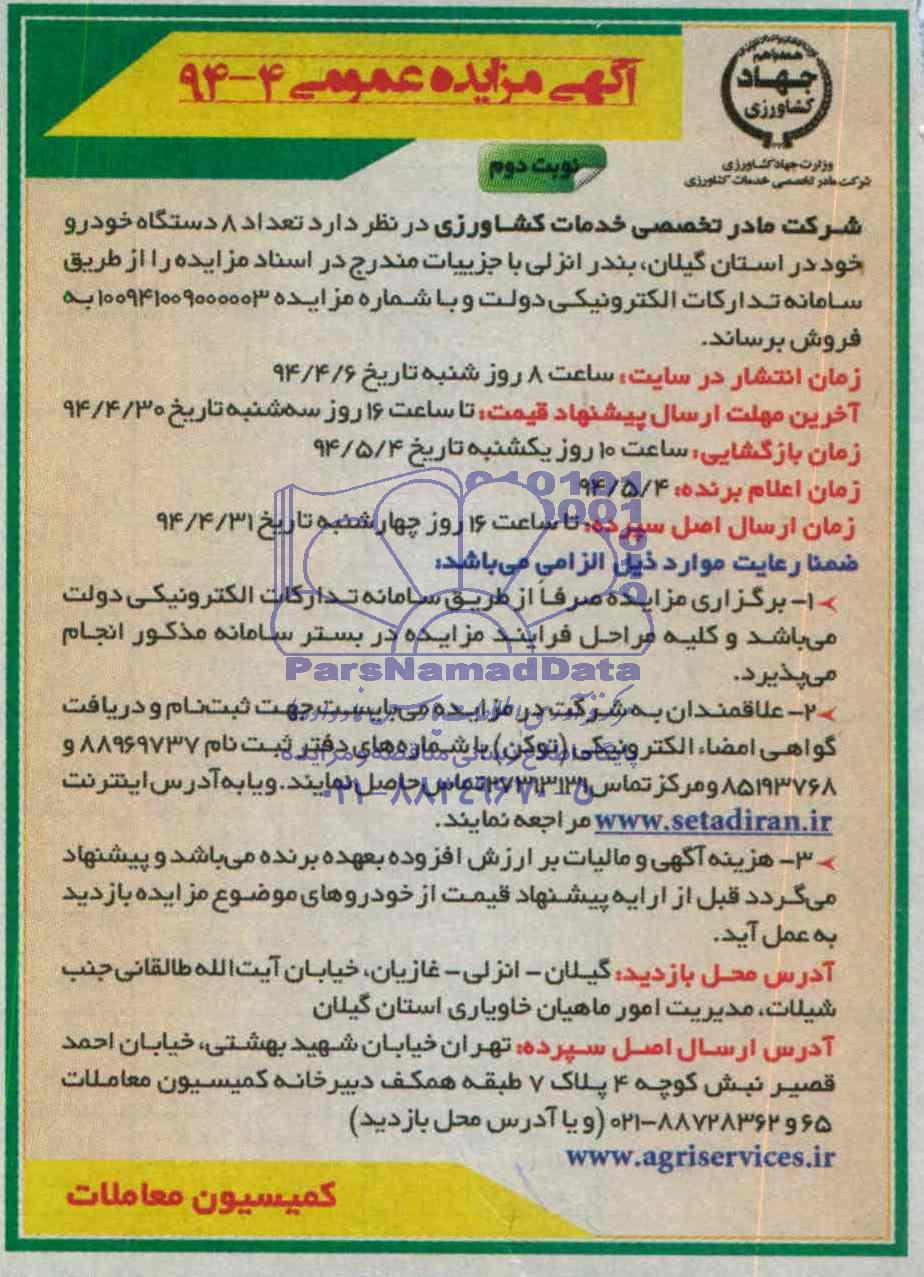 آگهی مزایده عمومی ۴-۹۴
همراهم
جهاد
کشاورزی
وزارت جهاد کشاورزی
شرکت مادر تخصصی خدمات کشاورزی
نوبت دوم
شرکت مادر تخصصی خدمات کشاورزی در نظر دارد تعداد ۸ دستگاه خودرو
خود در استان گیلان، بندر انزلی با جزییات مندرج در اسناد مزایده را از طریق
سامانه تدارکات الکترونیکی دولت و با شماره مزایده ۱۰۰۹۴۱۰۰۹۰۰۰۰۰۳ به
فروش برساند.
زمان انتشار در سایت: ساعت ۸ روز شنبه تاریخ ۹۴/۴/۶
آخرین مهلت ارسال پیشنهاد قیمت: تا ساعت ۱۶ روز سه‌شنبه تاریخ ۹۴/۴/۳۰
زمان بازگشایی: ساعت ۱۰ روز یکشنبه تاریخ ۹۴/۵/۴
زمان اعلام برنده: ۹۴/۵/۴
زمان ارسال اصل سپرده: تا ساعت ۱۶ روز چهارشنبه تاریخ ۹۴/۴/۳۱
ضمنا رعایت موارد ذیل الزامی می‌باشد:
۱- برگزاری مزایده صرفاً از طریق سامانه تدارکات الکترونیکی دولت
می‌باشد و کلیه مراحل فرایند مزایده در بستر سامانه مذکور انجام
می‌پذیرد.
ParsNamadData
۲- علاقمندان به شرکت در مزایده می‌بایست جهت ثبت‌نام و دریافت
گواهی امضاء الکترونیکی (توکن) با شماره‌های دفتر ثبت نام ۸۸۹۶۹۷۳۷ و
۸۵۱۹۳۷۶۸ و مرکز تماس تماس حاصل نمایند. و یا به آدرس اینترنت
www.setadiran.ir مراجعه نمایند.
۳- هزینه آگهی و مالیات بر ارزش افزوده بعهده برنده می‌باشد و پیشنهاد
می‌گردد قبل از ارایه پیشنهاد قیمت از خودروهای موضوع مزایده بازدید
به عمل آید.
آدرس محل بازدید: گیلان - انزلی - غازیان، خیابان آیت‌الله طالقانی جنب
شیلات، مدیریت امور ماهیان خاویاری استان گیلان
آدرس ارسال اصل سپرده: تهران خیابان شهید بهشتی، خیابان احمد
قصیر نبش کوچه ۴ پلاک ۷ طبقه همکف دبیرخانه کمیسیون معاملات
۶۵ و ۸۸۷۲۸۳۶۲-۰۲۱ (و یا آدرس محل بازدید)
www.agriservices.ir
کمیسیون معاملات